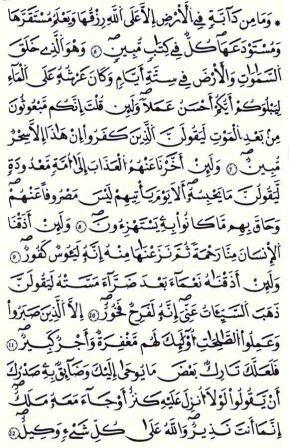 * وَمَا مِن دَآبَّةٍ فِي الْأَرْضِ إِلَّا عَلَى اللَّهِ رِزْقُهَا وَيَعْلَمُ مُسْتَقَرَّهَا
وَمُسْتَوْدَعَهَا كُلٌّ فِي كِتَابٍ مُّبِينٍ وَهُوَ الَّذِي خَلَقَ
السَّمَٰوَٰتِ وَالْأَرْضَ فِي سِتَّةِ أَيَّامٍ وَكَانَ عَرْشُهُ عَلَى الْمَآءِ
لِيَبْلُوَكُمْ أَيُّكُمْ أَحْسَنُ عَمَلًا وَلَئِن قُلْتَ إِنَّكُم مَّبْعُوثُونَ
مِنۢ بَعْدِ الْمَوْتِ لَيَقُولَنَّ الَّذِينَ كَفَرُوا إِنْ هَٰذَا إِلَّا سِحْرٌ
مُّبِينٌ وَلَئِنْ أَخَّرْنَا عَنْهُمُ الْعَذَابَ إِلَىٰ أُمَّةٍ مَّعْدُودَةٍ
لَّيَقُولُنَّ مَا يَحْبِسُهُ أَلَا يَوْمَ يَأْتِيهِمْ لَيْسَ مَصْرُوفًا عَنْهُمْ
وَحَاقَ بِهِم مَّا كَانُوا بِهِ يَسْتَهْزِءُونَ وَلَئِنْ أَذَقْنَا
الْإِنسَانَ مِنَّا رَحْمَةً ثُمَّ نَزَعْنَاهَا مِنْهُ إِنَّهُ لَيَئُوسٌ كَفُورٌ
وَلَئِنْ أَذَقْنَاهُ نَعْمَآءَ بَعْدَ ضَرَّآءَ مَسَّتْهُ لَيَقُولَنَّ
ذَهَبَ السَّيِّئَاتُ عَنِّي إِنَّهُ لَفَرِحٌ فَخُورٌ ١٠ إِلَّا الَّذِينَ صَبَرُوا
وَعَمِلُوا الصَّالِحَاتِ أُولَٰئِكَ لَهُم مَّغْفِرَةٌ وَأَجْرٌ كَبِيرٌ ١١
فَلَعَلَّكَ تَارِكٌۢ بَعْضَ مَا يُوحَىٰ إِلَيْكَ وَضَآئِقٌۢ بِهِ صَدْرُكَ
أَن يَقُولُوا لَوْلَا أُنزِلَ عَلَيْهِ كَنزٌ أَوْ جَآءَ مَعَهُ مَلَكٌ
إِنَّمَا أَنتَ نَذِيرٌ وَاللَّهُ عَلَىٰ كُلِّ شَيْءٍ وَكِيلٌ ١٢